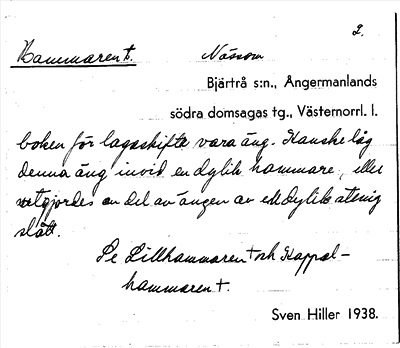 2.
Hammaren t. Nässom
Bjärtrå s:n., Ångermanlands
södra domsagas tg., Västernorrl. l.
boken för lagaskifte vara äng. Kanske låg
denna äng invid en dylik hammare, eller
utgjordes en del av ängen av ett dylik stenig
slått.
Se Lillhammaren t och Kappal-
hammaren t.
Sven Hiller 1938.